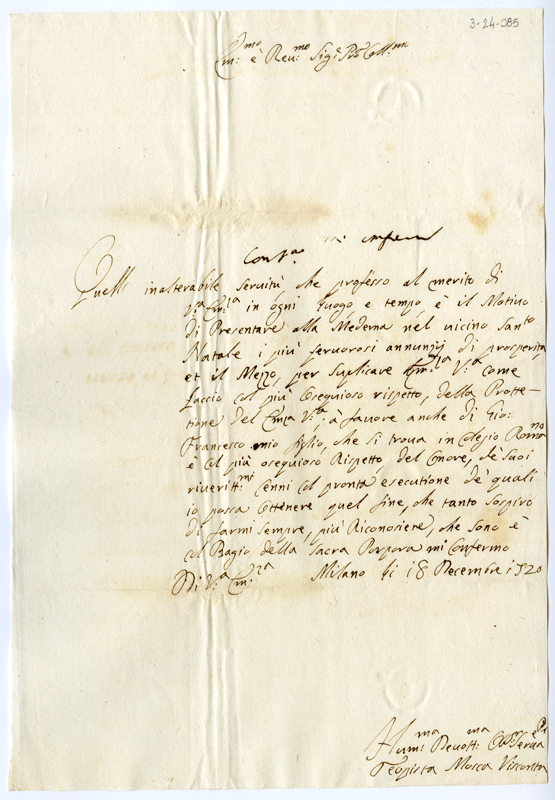 3-24-085
Em:mo è Reu:mo Sig:e Prõ Coll:mo
Conf:a
Quell' inalterabile seruitù che professo al merito di
V:ra Em:za in ogni luogo e tempo, è il Motiuo
di Presentare alla Medema nel uicino Santo
Natale i più feruorosi annunzij di prosperità,
et il Mezzo, per suplicare Em:za V:a come
faccio col più osequioso rispetto, della Protte-
tione del Emza V:a, à fauore anche di Gio:
Francesco mio figlio, che si troua in Colegio Romano
è col più osequioso Rispetto del Onore, de suoi
riueritt:mi cenni col pronta esecutione de quali
io possa ottenere quel fine, che tanto sospiro
di farmi sempre, più Riconosiere, che sono è
col Bagio della Sacra Porpora mi Confermo
Di V:a Em:za Milano li 18 Decembre 1720
Hum:ma Deuott:ma Serua
Teopista Mosca Visconti